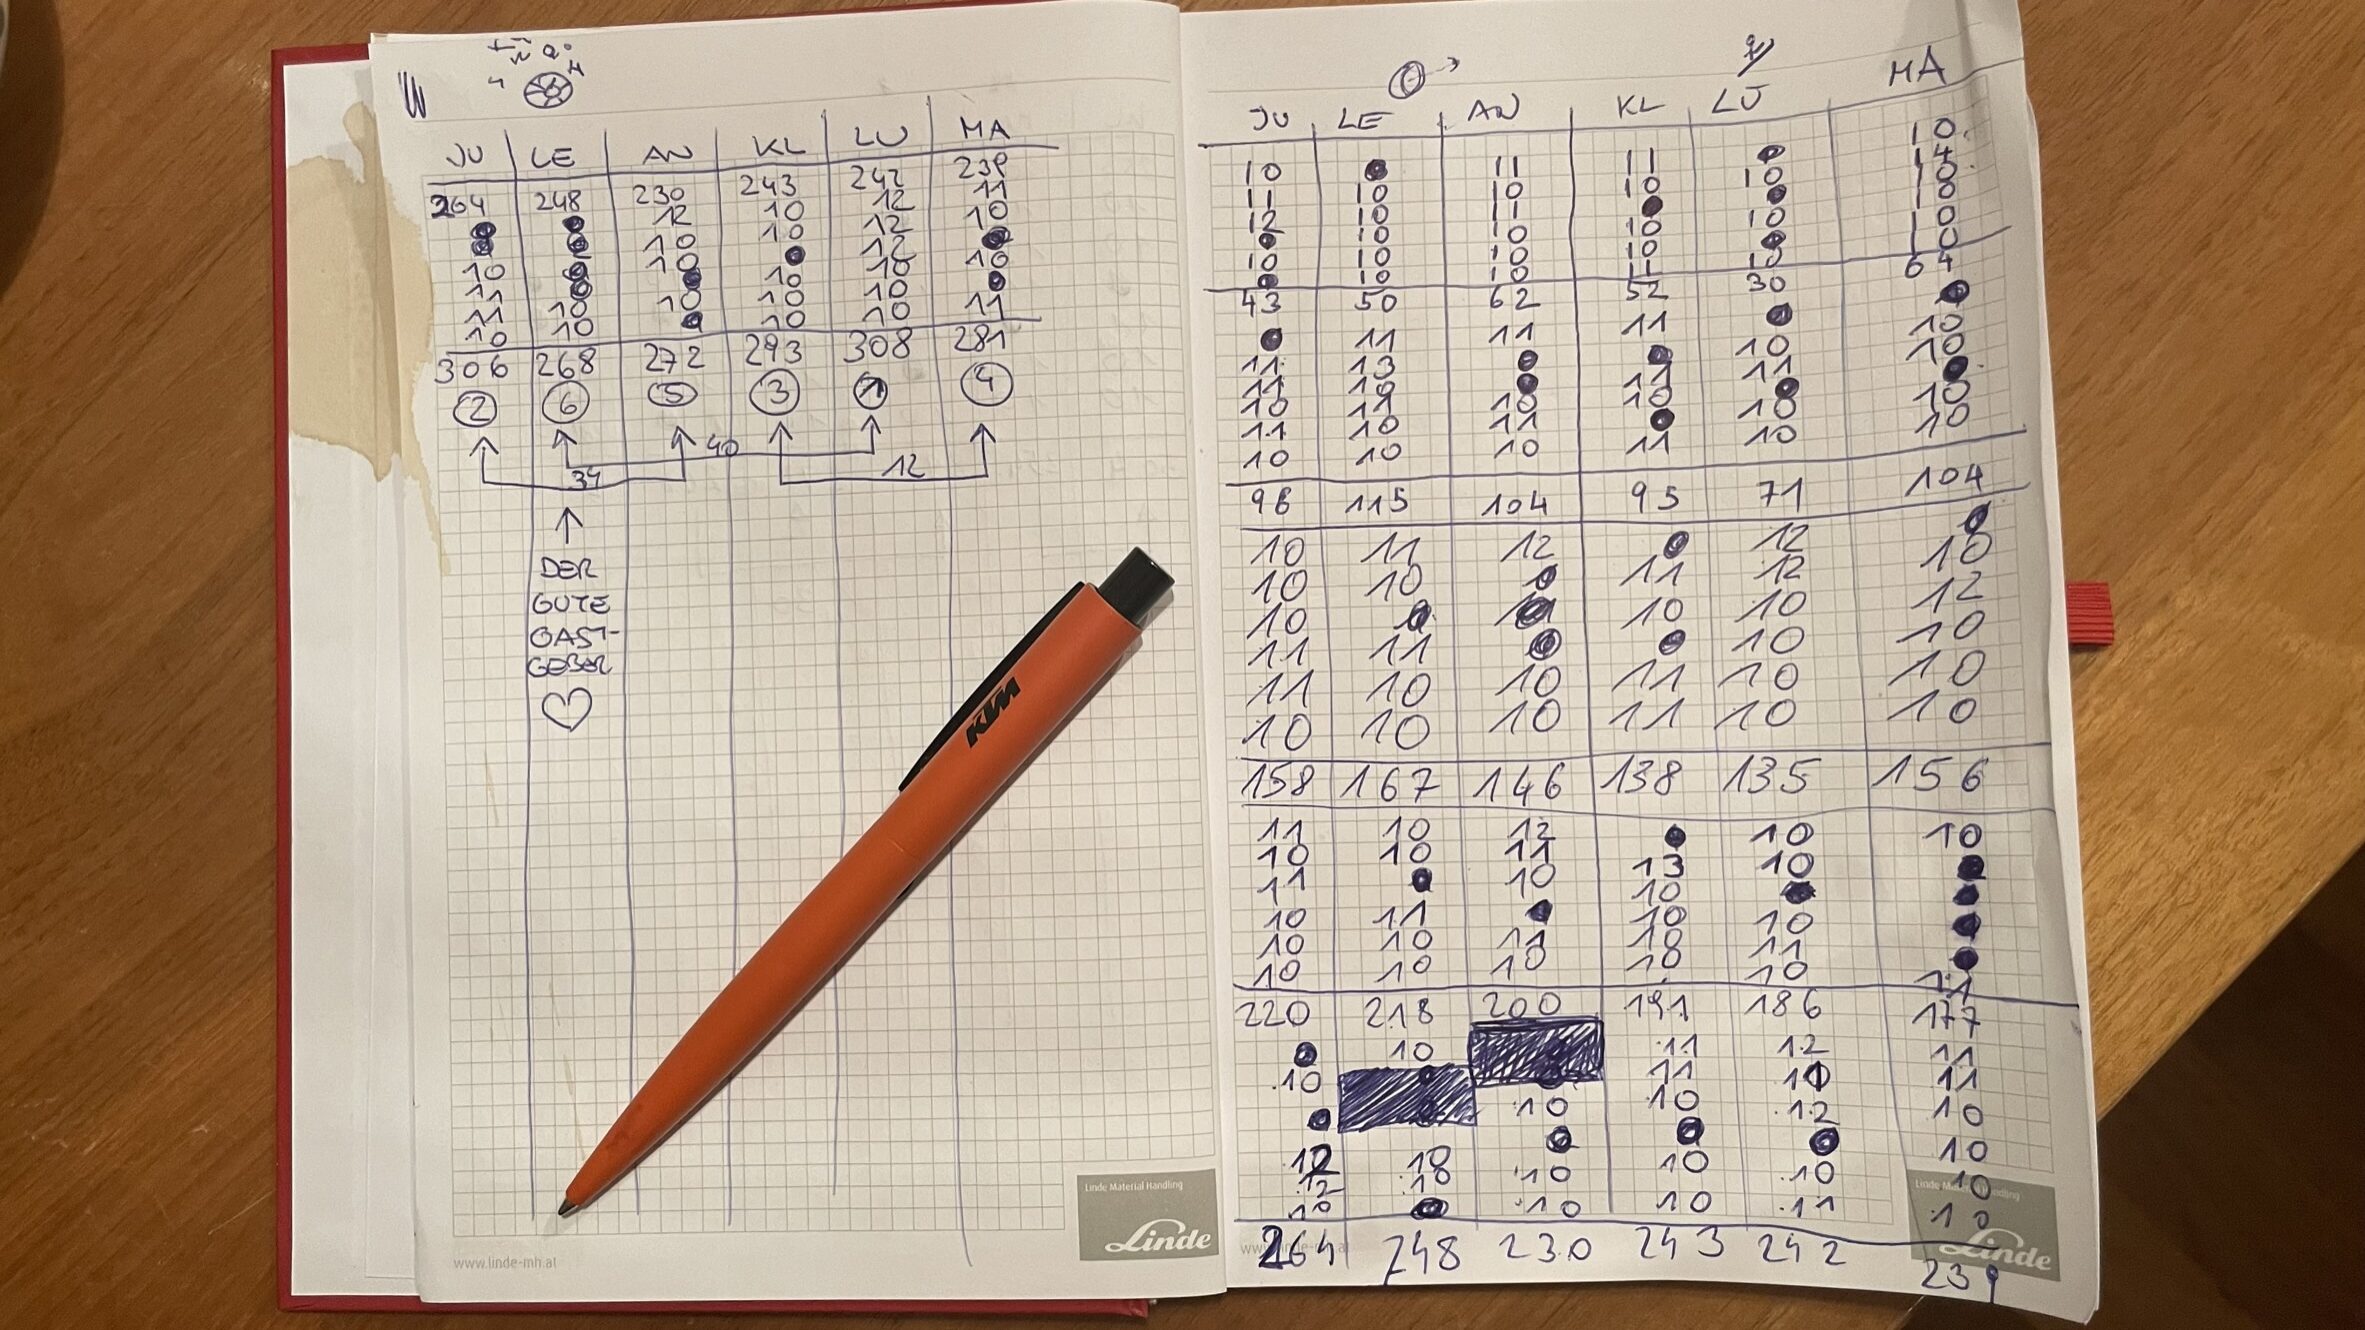 JU LE AN KL LU MA
264 248 230 243 242 239
12 10 12 11
10 10 12 10
10 12
10 10 10 10
11 10 10 10 10
11 10 10 10 11
10
306 268 272 293 308 281
2 6 5 3 1 4
40
34 12
DER
GUTE
GAST-
GEBER
KTM
Linde Material Handling
Linde
www.linde-mh.at
JU LE AN KL LU MA
10 11 11 10
11 10 10 10 10 14
12 10 11 10
10 10 10 10 10
10 10 10 10 10
10 10 11 10
43 50 62 52 30 64
11 11 11
11 13 10 10
11 10 11 11 10
10 11 10 10 10
11 10 11 10 10
10 10 10 11 10
96 115 104 95 71 104
10 11 12 12
10 10 11 12 10
10 10 10 12
11 11 10 10
11 10 10 11 10 10
10 10 10 11 10 10
158 167 146 138 135 156
11 10 12 10 10
10 10 11 13 10
11 10 10
10 11 10 10
10 10 11 10 11
10 10 10 10 10 11
220 218 200 191 186 177
10 11 12 11
10 11 10 11
10 10 12 10
10
12 10 10 10 10 10
12 10
10 10 10 11 10
264 248 230 243 242 239
Linde Material Handling
Linde